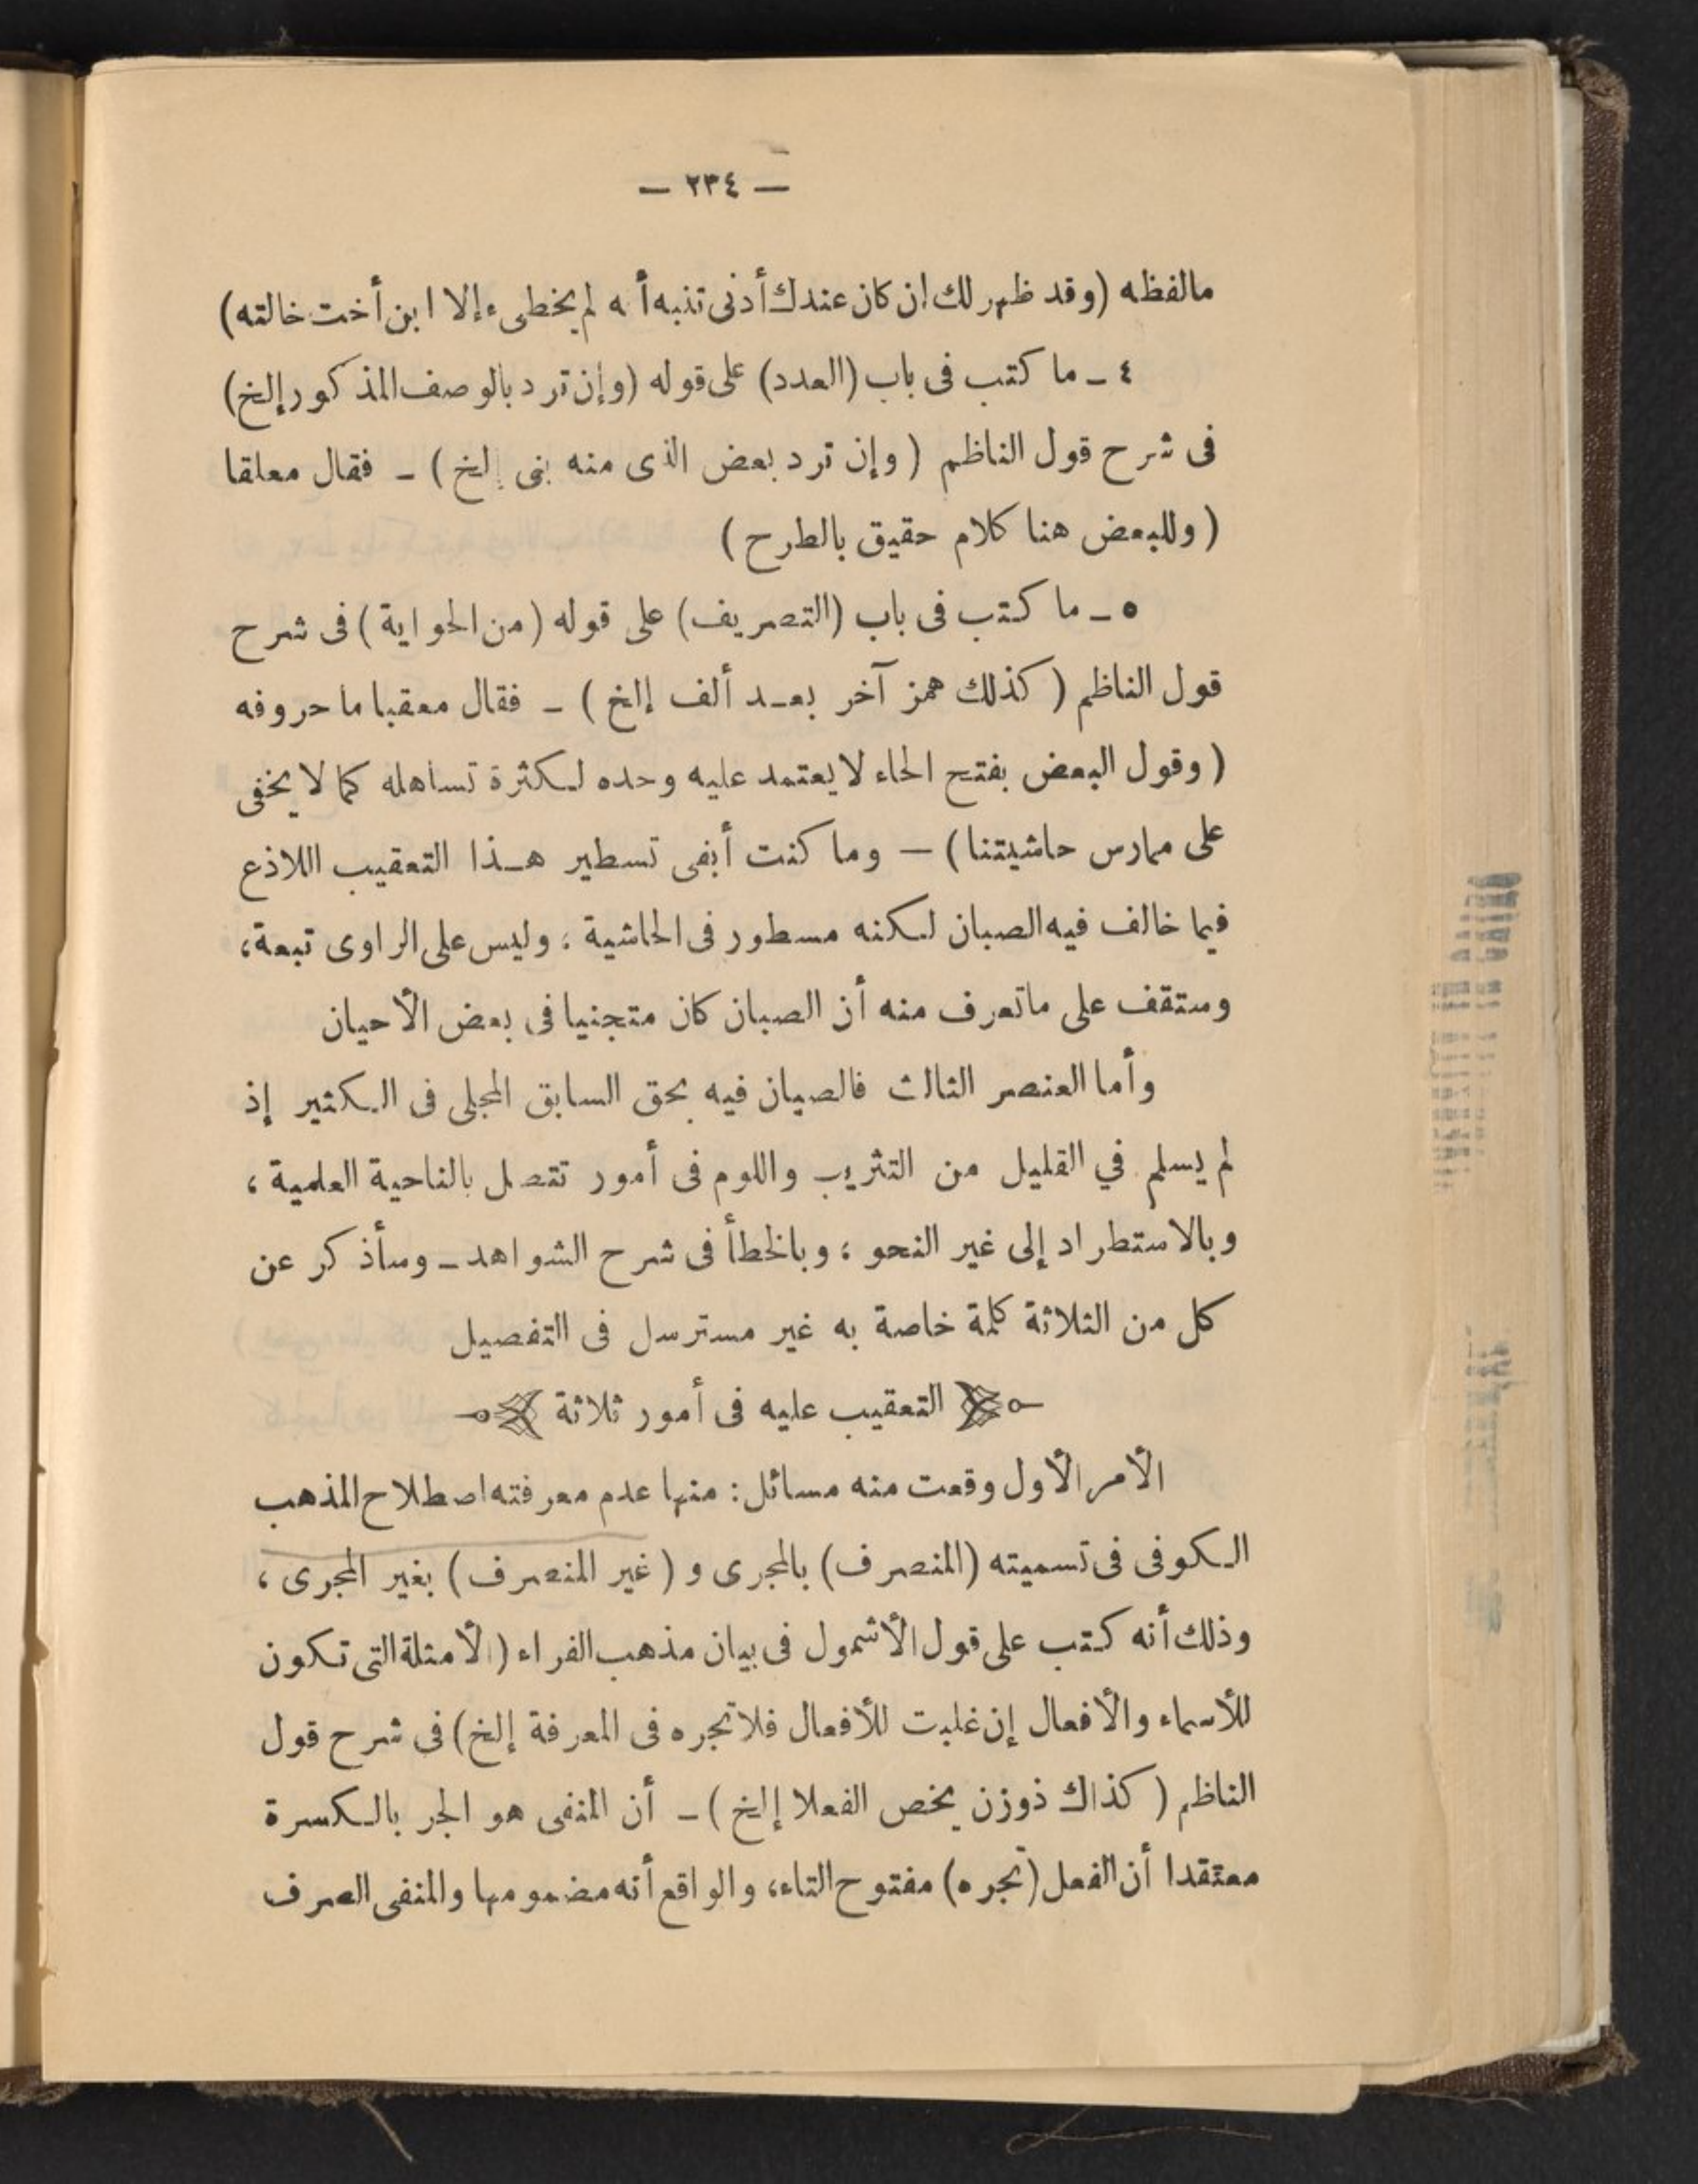 — ٢٣٤ —
مالفظه (وقد ظهر لك إن كان عندك أدنى تنبه أنه لم يخطىء إلا ابن أخت خالته)
٤ ـ ما كتب فى باب (العدد) على قوله (وإن ترد بالوصف المذكور إلخ)
فى شرح قول الناظم (وإن ترد بعض الذى منه بنى إلخ) ـ فقال معلقا
(وللبعض هنا كلام حقيق بالطرح)
٥ ـ ما كتب فى باب (التصريف) على قوله (من الحواية) فى شرح
قول الناظم (كذلك همز آخر بعد ألف إلخ) ـ فقال معقبا ما حروفه
(وقول البعض بفتح الحاء لا يعتمد عليه وحده لكثرة تساهله كما لا يخفى
على ممارس حاشيتنا) — وما كنت أبغى تسطير هذا التعقيب اللاذع
فيما خالف فيه الصبان لكنه مسطور فى الحاشية ، وليس على الراوى تبعة ،
وستقف على ماتعرف منه أن الصبان كان متجنيا فى بعض الأحيان
وأما العنصر الثالث فالصبان فيه بحق السابق المجلى فى الكثير إذ
لم يسلم في القليل من التثريب واللوم فى أمور تتصل بالناحية العلمية ،
وبالاستطراد إلى غير النحو ، وبالخطأ فى شرح الشواهد ـ وسأذكر عن
كل من الثلاثة كلمة خاصة به غير مسترسل فى التفصيل
التعقيب عليه فى أمور ثلاثة
الأمر الأول وقعت منه مسائل : منها عدم معرفته اصطلاح المذهب
الكوفى فى تسميته (المنصرف) بالمجرى و (غير المنصرف) بغير المجرى ،
وذلك أنه كتب على قول الأشمول فى بيان مذهب الفراء (الأمثلة التى تكون
للأسماء والأفعال إن غلبت للأفعال فلا تجره فى المعرفة إلخ) فى شرح قول
الناظم (كذاك ذوزن يخص الفعلا إلخ) ـ أن المنفى هو الجر بالكسرة
معتقدا أن الفعل (تجره) مفتوح التاء، والواقع أنه مضمومها والمنفى الصرف